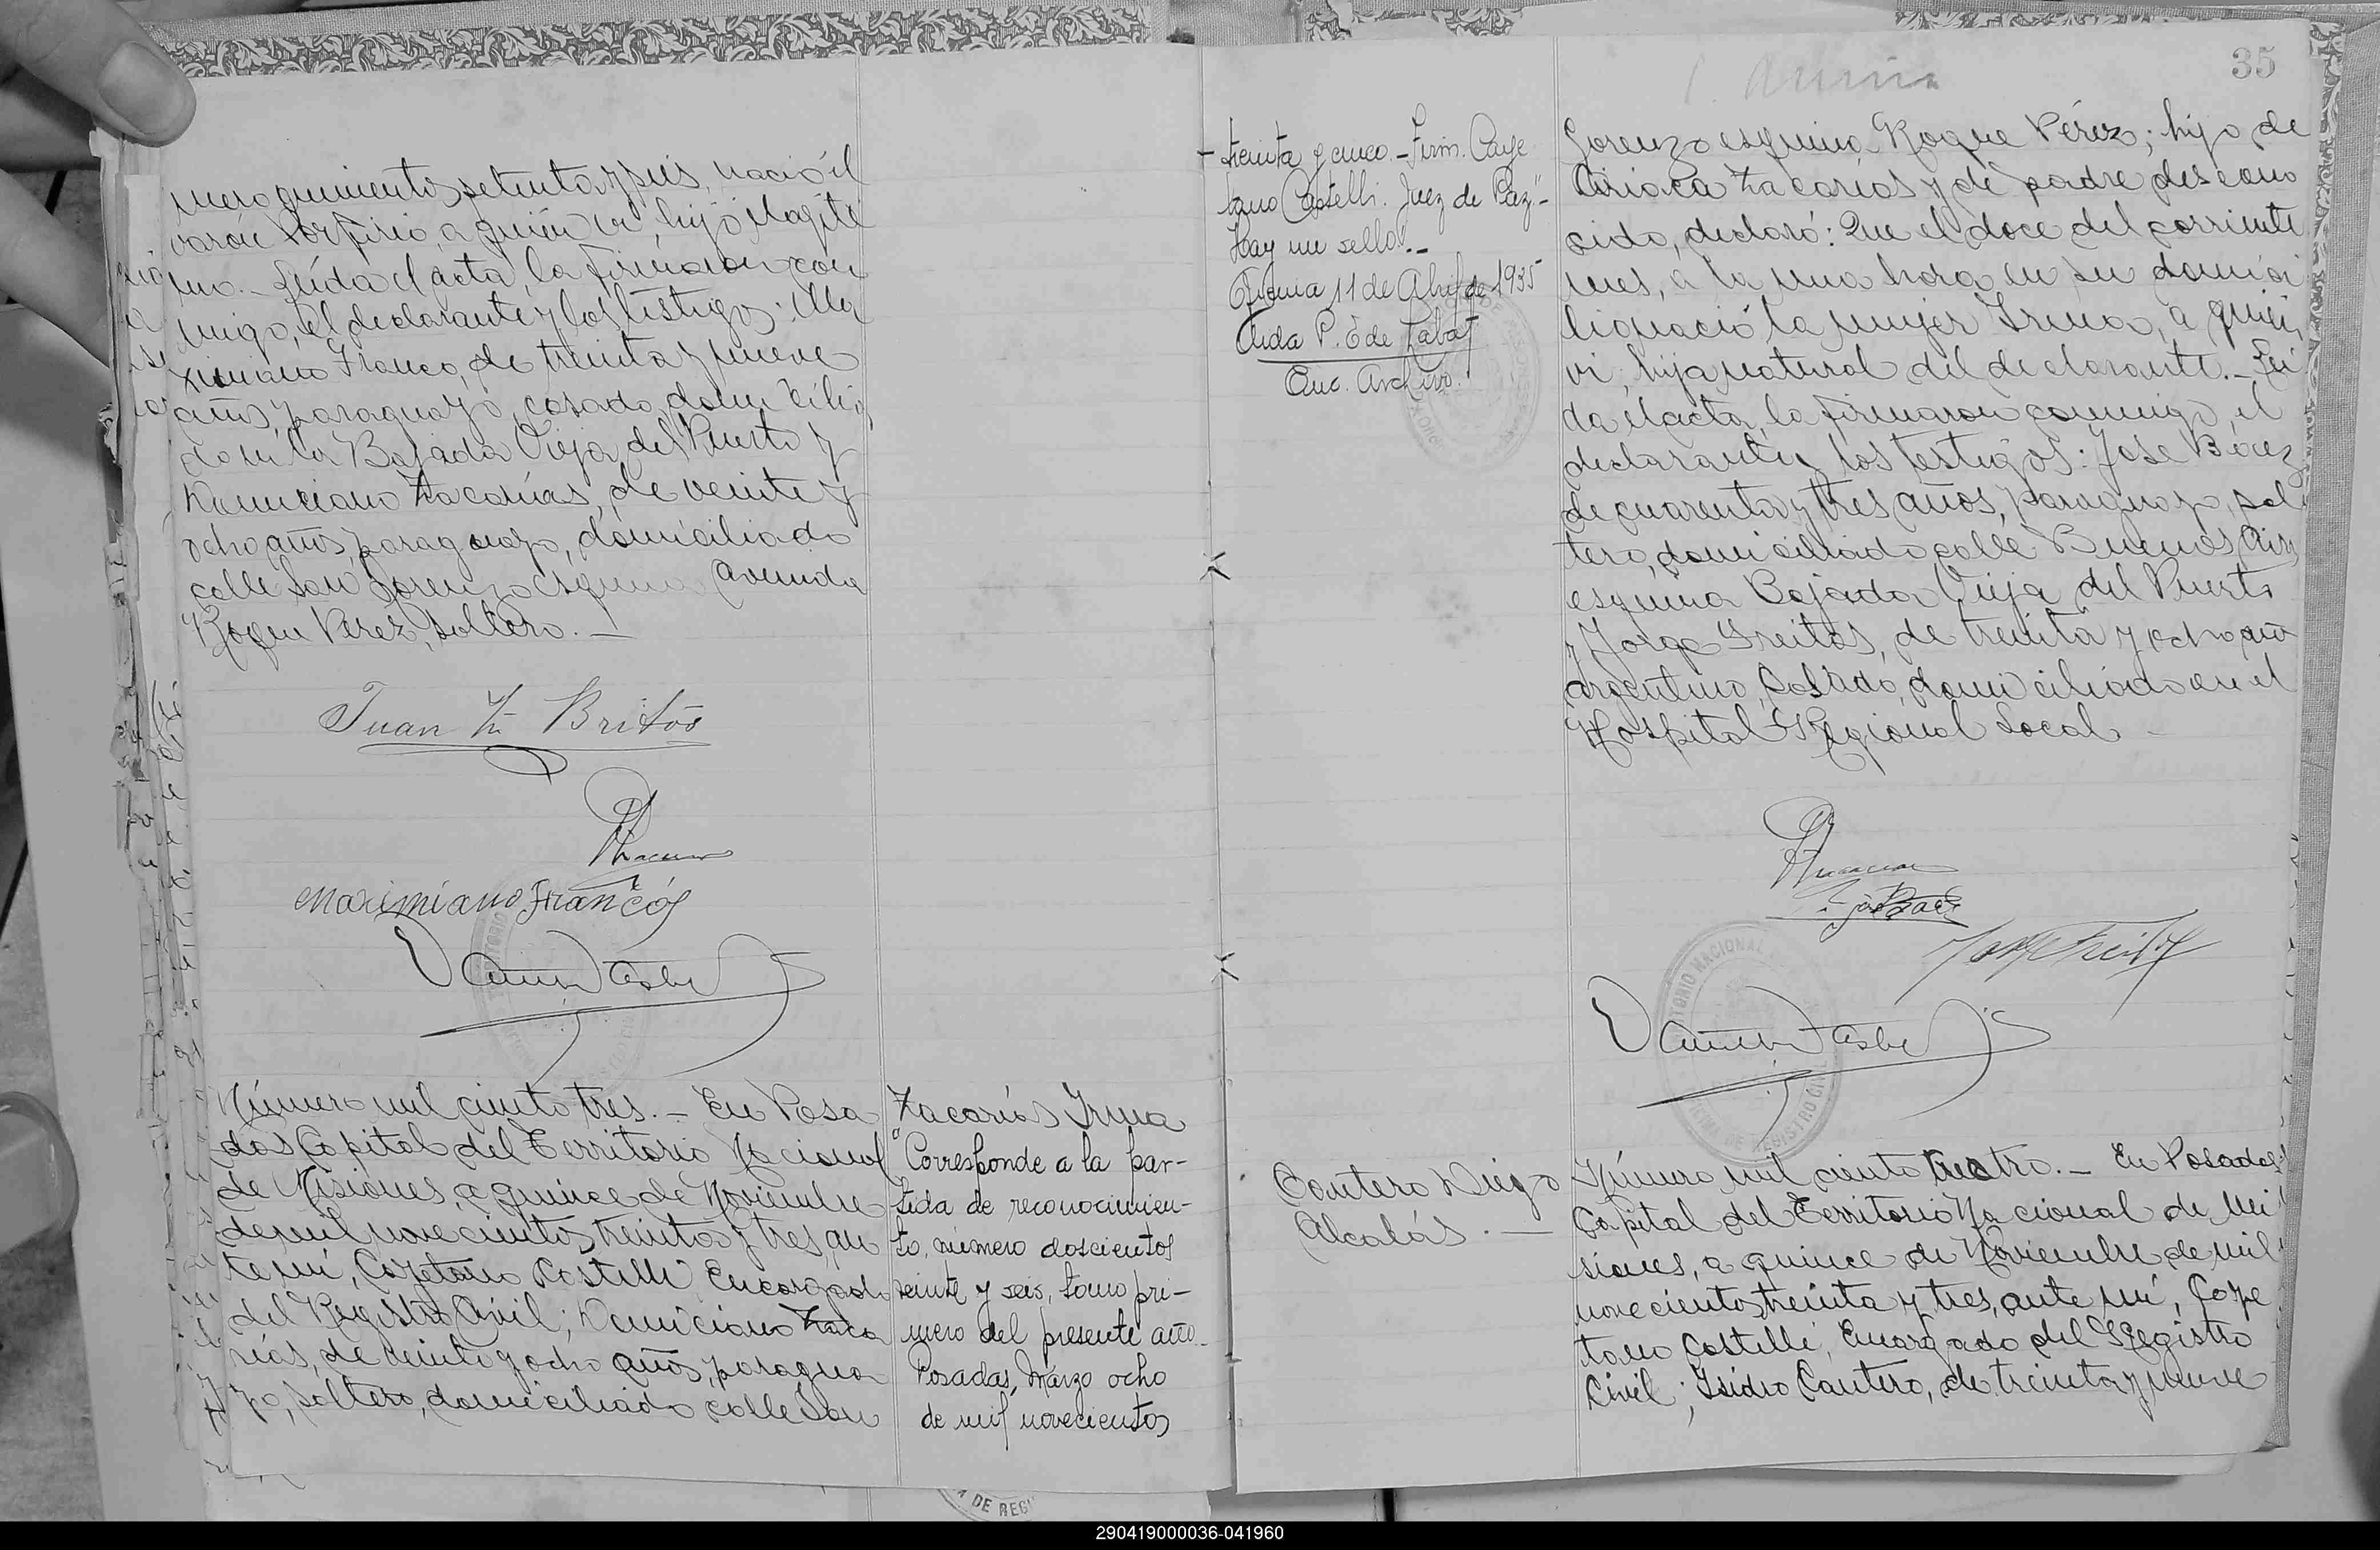 mero quinientos setenta y seis, nació el
varón Porfirio, a quién vi, hijo ilegíti
mo. - Leída el acta, la firmaron con
migo, el declarante y los testigos: Ma
ximiano Franco, de treinta y nueve
años, paraguayo, casado, domicilia
do en la Bajada Vieja del Puerto y
Zacarías, de veinte y
ocho años, paraguayo, domiciliado
calle San Lorenzo esquina Avenida
Roque Pérez, soltero. -
Juan Britos
Maximiano Franco
Número mil ciento tres. - En Posa
das Capital del Territorio Nacional
de Misiones, a quince de Noviembre
de mil novecientos treinta y tres, an
te mí, Cayetano Castelli Encargado
del Registro Civil; Zaca
rías, de veinte y ocho años, paragua
yo, soltero, domiciliado calle San
Zacarías Irma
"Corresponde a la par-
tida de reconocimien-
to, número doscientos
veinte y seis, tomo pri-
mero del presente año.
Posadas, Marzo ocho
de mil novecientos
treinta y cinco. - Firm. Caye
tano Castelli. Juez de Paz" -
Hay un sello". -
Oficina 11 de Abril de 1935
Aida P. E de Labat
Enc. Archivo.
35
Lorenzo esquina Roque Pérez; hijo de
Ciriaca Zacarías y de padre descono
cido, declaró: Que el doce del corriente
mes, a la una hora en su domici
lio nació la mujer Irma, a quién
vi, hija natural del declarante. - Leí
da el acta, la firmaron conmigo, el
declarante y los testigos: José Báez
de cuarenta y tres años, paraguayo, sol
tero, domiciliado calle Buenos Aires
esquina Bajada Vieja del Puerto
y Jorge Freitas, de treinta y ocho años
argentino, casado, domiciliado en el
Hospital Regional Local -
José Báez
Jorge Freitas
Cantero Diego
Alcalás. -
Número mil ciento cuatro. - En Posadas
Capital del Territorio Nacional de Mi
siones, a quince de Noviembre de mil
novecientos treinta y tres, ante mí, Caye
tano Castelli, Encargado del Registro
Civil; Isidro Cantero, de treinta y nueve
290419000036-041960